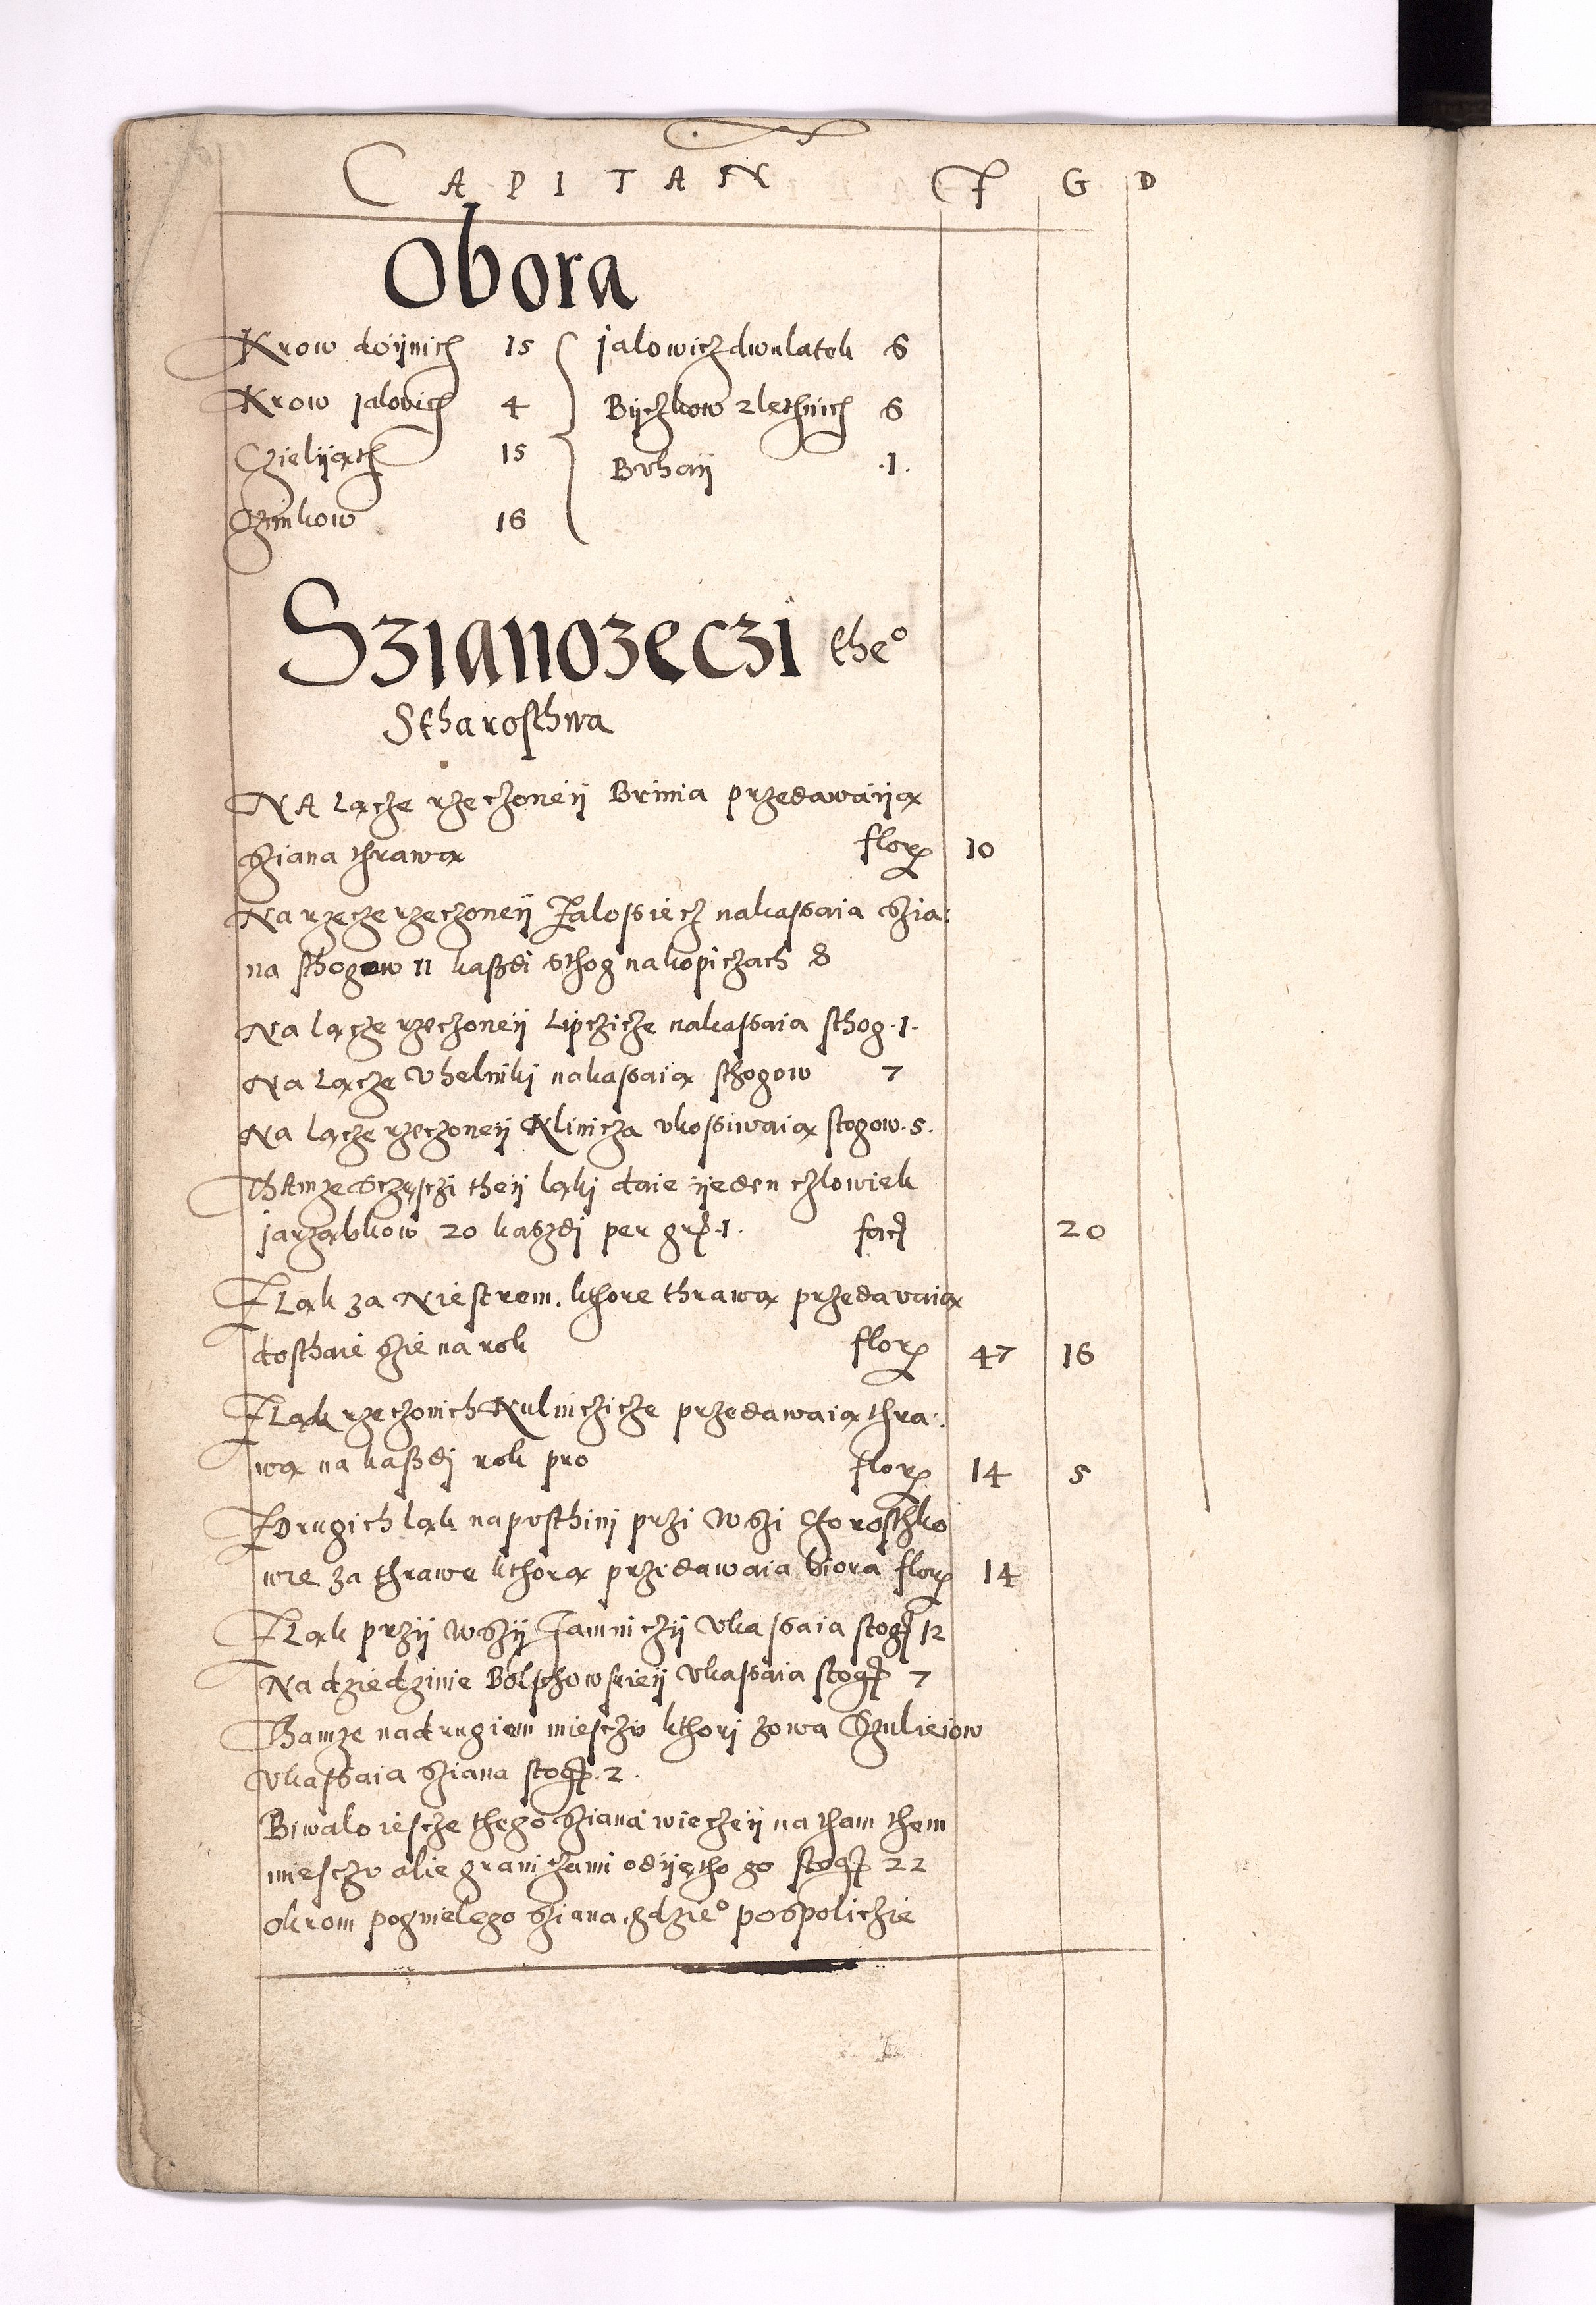 CAPITAN F G D
Obora
Krow doijnich 15 jalowicz dwulatek 6
Krow jalovich 4 Bijczkow 2 lethnich 6
Czieliąth 15 Buhaij .1.
16
Szianozeczi the°
Stharosthwa
NA Lącze rzeczoneij Brinia przedawaiją
Sziana thrawą flor 10
Na rzecze rzeczoneij nakassaia Szia:
na sthogow 11 kaßdi sthog na kopiczach 8
Na lącze rzeczoneij Lipczicze nakassaia sthog .1.
Na Lącze Vhelniki nakassaią sthogow 7
Na lącze rzeczoneij Klinicza vkossiwaią stogow .5.
Thamze Sczęsczi theij ląki daie ijeden człowiek
jarząbkow 20 kaszdi per gr .1. facit 20
Z Ląk za Niestrem. kthore thrawą przedavaią
dosthaie Szie na rok flor 47 16
Z Ląk rzeczonich Kulniczicze przedawaią thra:
wą na kaßdi rok pro flor 14 5
Z Drugich ląk na pusthini przi Wszi Choroschko
wie za thrawe kthorą przedawaia biora flor 14
Z Ląk przij Wszij Jamniczij Vkassaia stog 12
Na dziedzinie Bolschowskieij Vkassaia stog 7
Thamze na drugiem miesczu kthori zowa Szuliejow
Vkassaia Sziana stog .2.
Biwalo iescze thego Sziana wieczeij na tham them
miesczu alie graniczami odijętho go stog 22
okrom pognielego Sziana. gdzie° pospoliczie